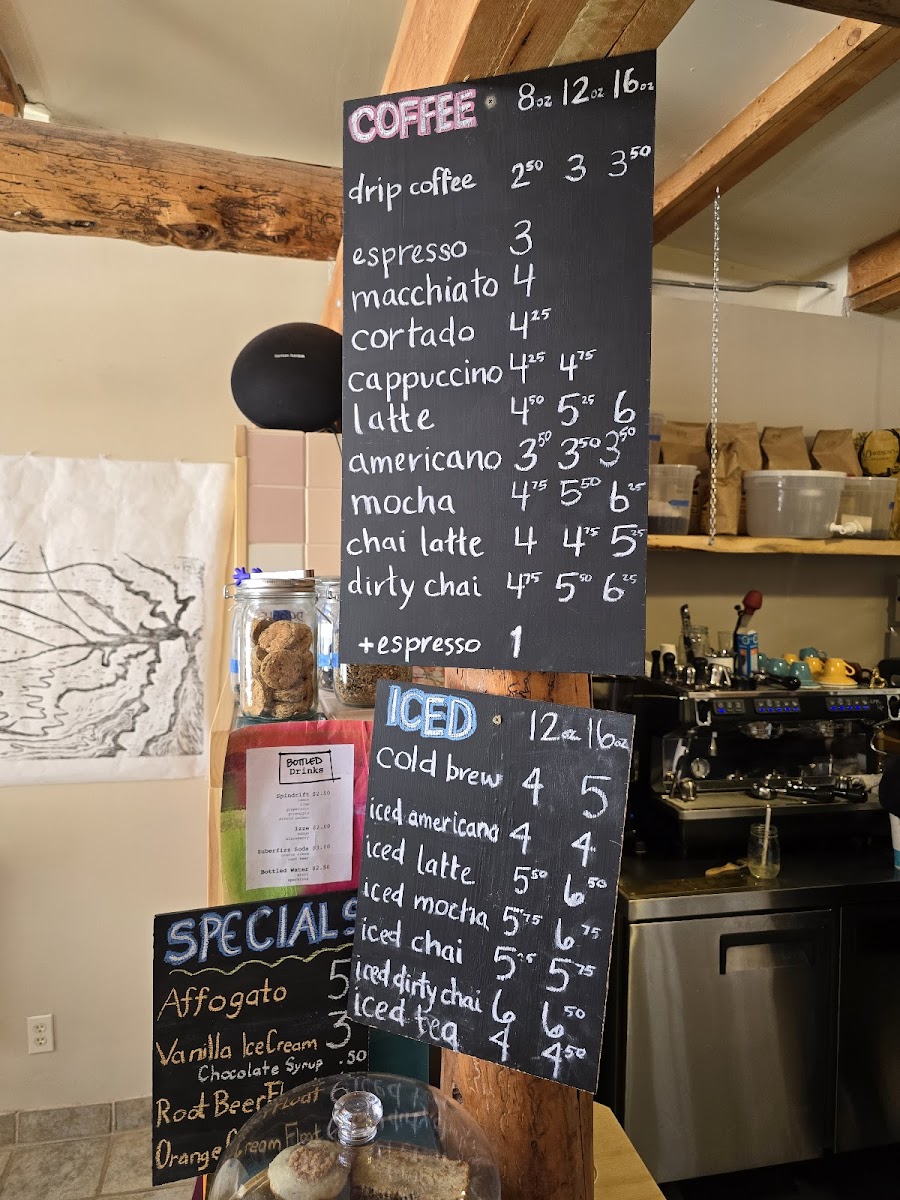 COFFEE 8oz 12oz 16oz
drip coffee 2⁵⁰ 3 3⁵⁰
espresso 3
macchiato 4
cortado 4²⁵
cappuccino 4²⁵ 4⁷⁵
latte 4⁵⁰ 5²⁵ 6
americano 3⁵⁰ 3⁵⁰ 3⁵⁰
mocha 4⁷⁵ 5⁵⁰ 6²⁵
chai latte 4 4⁷⁵ 5²⁵
dirty chai 4⁷⁵ 5⁵⁰ 6²⁵
+espresso 1
ICED 12oz 16oz
cold brew 4 5
iced americano 4 4
iced latte 5⁵⁰ 6⁵⁰
iced mocha 5⁷⁵ 6⁷⁵
iced chai 5²⁵ 5⁷⁵
iced dirty chai 6 6⁵⁰
iced tea 4 4⁵⁰
BOTTLED
Drinks
Spindrift $2.50
Izze $2.00
Zuberfizz Soda $3.00
Bottled Water $2.50
SPECIALS
Affogato 5
Vanilla IceCream 3
Chocolate Syrup .50
Root Beer Float 6
Orange Cream Float